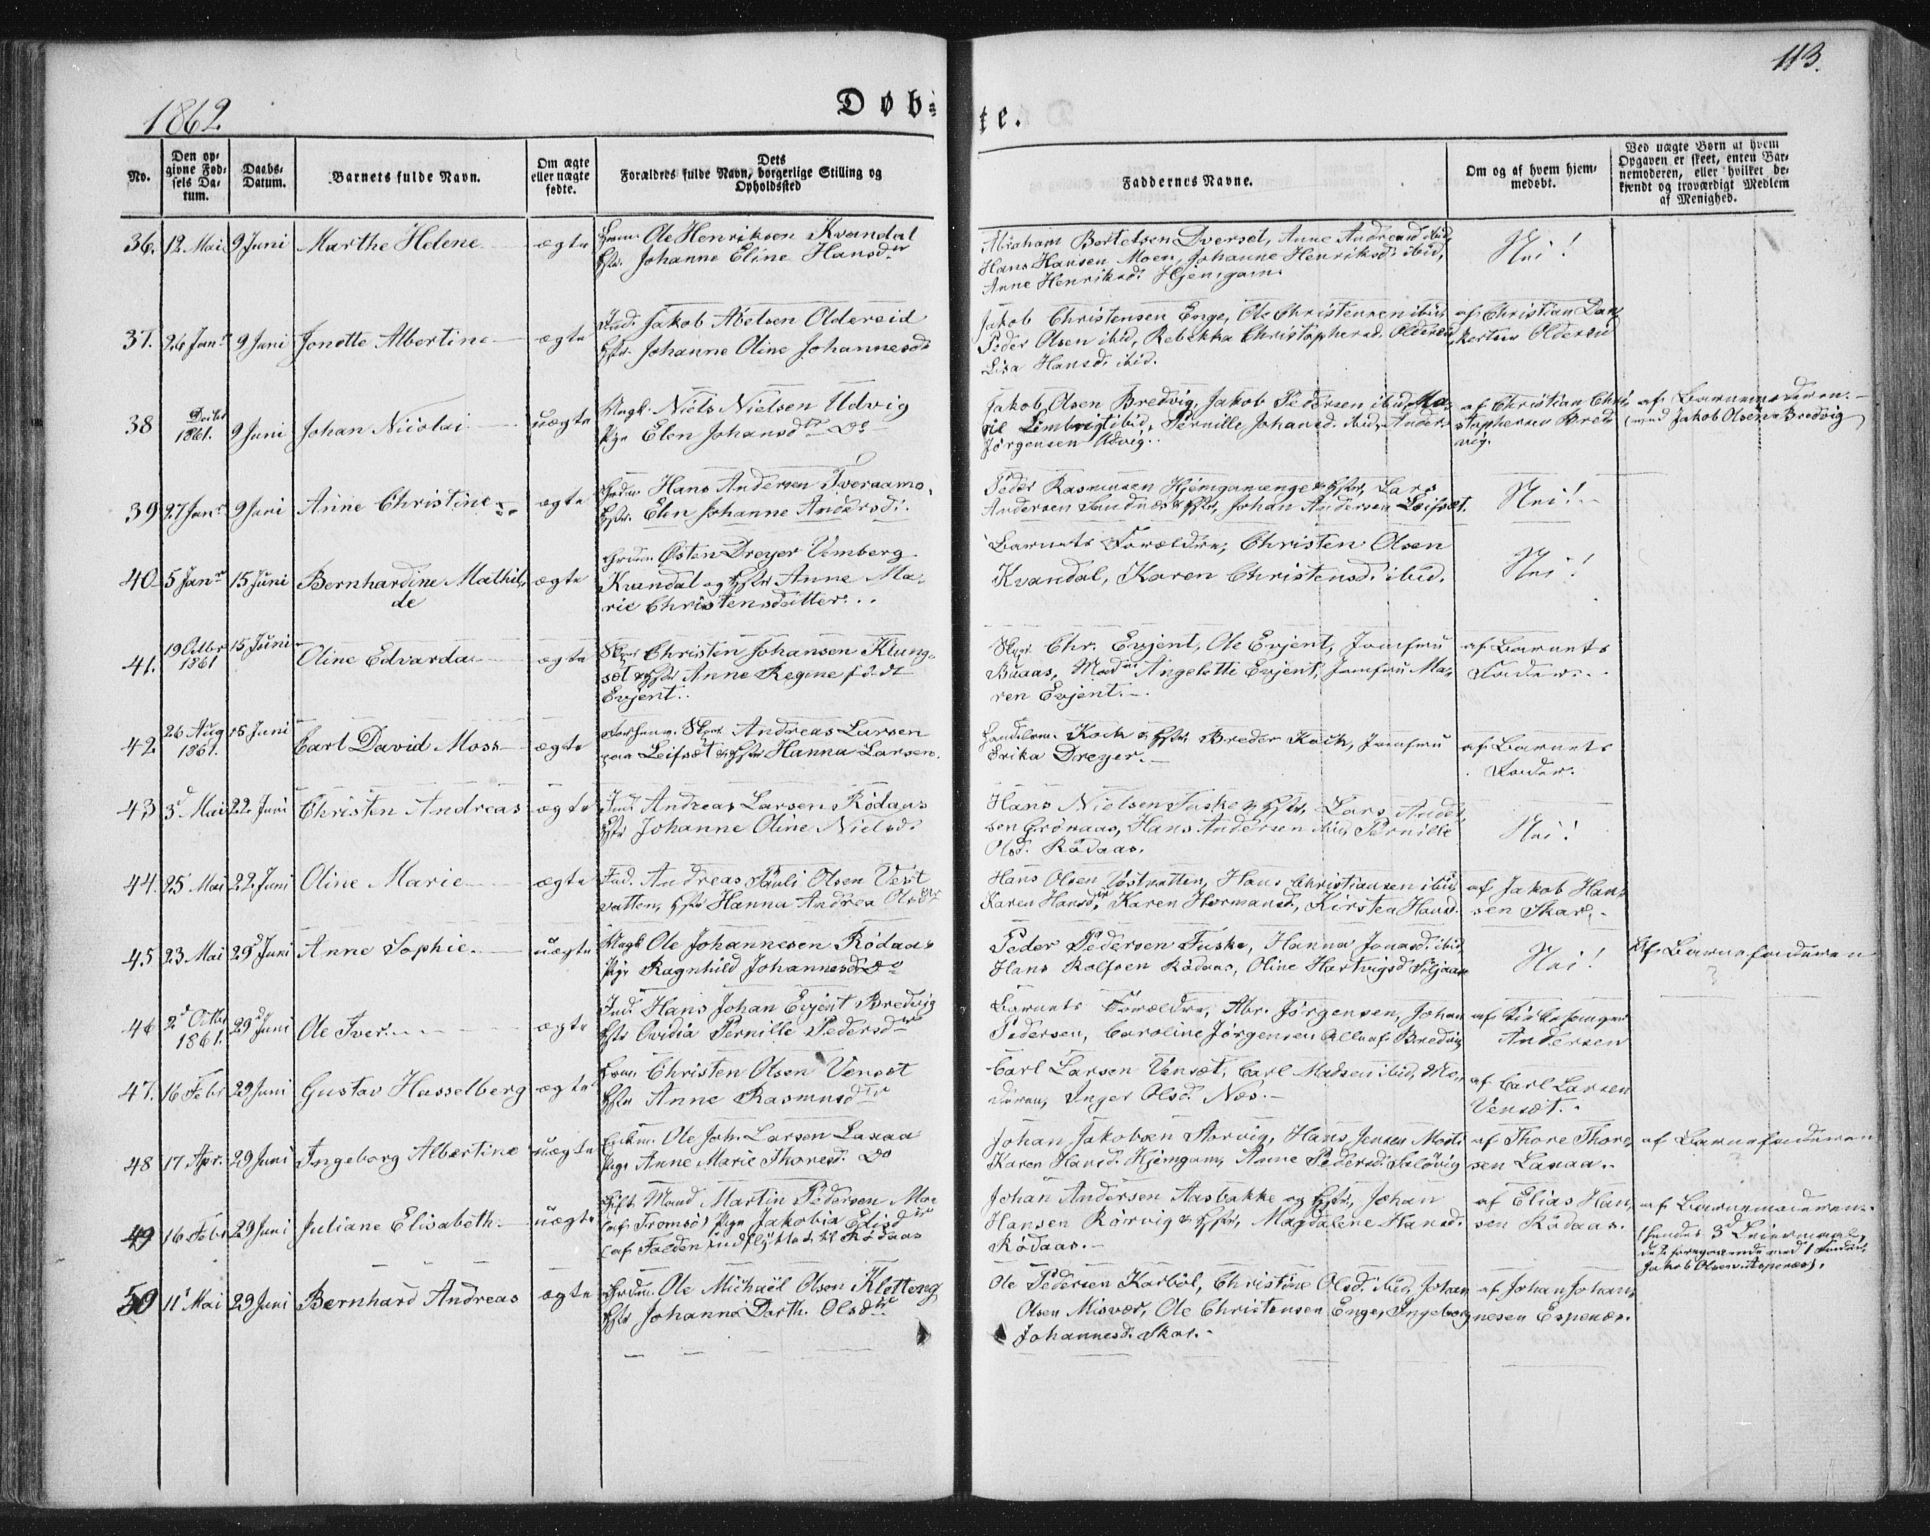 113.
1862.
Døb-
te.
No.
Den op-
givne Fød-
sels Da-
tum.
Daabs-
Datum.
Barnets fulde Navn.
Om ægte
eller uægte
fødte.
Dets
Forældres fulde Navn, borgerlige Stilling og
Opholdssted
Faddernes Navne.
Om og af hvem hjem-
medøbt.
Ved uægte Børn at hvem
Opgaven er skeet, enten Bar-
nemoderen, eller hvilket be-
kjendt og troværdigt Medlem
af Menighed.
36. 12. Mai 9 Juni Marthe Helene ægte
Ole Henriksen Kvandal
Johanne Eline Hansdtr
Abraham Bertelsen Dverset, Anne Andreasd ibid,
Hans Hansen Moen, Johanne Henriksd. ibid,
Anne Henriksd. Hjemgam.
Nei!
37. 26 Janr 9 Juni Jonette Albertine ægte
Ind. Jakob Abelsen Oldereid
Hstr. Johanne Oline Johannesdr
Jakob Christensen Enge, Ole Christensen ibid,
Peder Olsen ibid, Rebekka Christophersd. Oldereid,
Lisa Hansd. ibid.
af Christian Dan
kertsen Oldereid
38 Decbr
1861. 9 Juni Johan Nicolai uægte
Ungk. Niels Nielsen Udvig
Pige Elen Johansdtr Do
Jakob Olsen Bredvig, Jakob Pedersen ibid, Ma-
Limbvig ibid, Pernille Johansd. ibid, Anders
Jørgensen Udvig.
af Christian Chri-
stophersen Bred-
vig.
af Barnemoderen.
(med Jakob Olsen Bredvig)
39 27 Janr 9 Juni Anne Christine ægte
Hans Andersen Tveraamo
Hstr. Elen Johanne Andersd.
Peder Rasmussen Hjemgamenge & Hstr, Lars
Andersen Sandnes & Hstr, Johan Andersen Leifset.
Nei!
40. 5 Janr 15 Juni Bernhardine Mathil-
de ægte
Østen Dreyer Vemberg
Kvandal og Hstr Anne Ma-
rie Christensdatter.
Barnets Forældre, Christen Olsen
Kvandal, Karen Christensd. ibid.
Nei!
41. 19 Octbr
1861 15 Juni Oline Edvarda ægte
Christen Johansen Klung-
set & Hstr Anne Regine født
Evjent.
Chr. Evjent, Ole Evjent, Jomfru
Buaas, Mad. Angelotte Evjent, Jomfru Ma-
ren Evjent.
af Barnets
Fader.
42. 26 Aug
1861. 15 Juni Carl David Moss ægte
Andreas Larsen
paa Leifsæt & Hstr Hanna Larsen.
Handelsm. Koch & Hstr, Breder Koch, Jomfru
Erika Dreyer.
af Barnets
Fader.
43 3d Mai 22. Juni Christen Andreas ægte
Ind. Andreas Larsen Rødaas
Hstr Johanne Oline Nielsd.
Hans Nielsen Fuske & Hstr, Lars Ander
sen Grønaas, Hans Andersen ibid, Pernille
Olsd. Rødaas.
Nei!
44. 25 Mai 22. Juni Oline Marie ægte
Ind. Andreas Pauli Olsen Vest
vatten, Hstr Hanna Andrea Olsdtr
Hans Olsen Vestvatten, Hans Christiansen ibid,
Karen Hansdtr, Karen Hermansd, Kirsten Hansd.
af Jakob Han-
sen Skar.
45 23 Mai 29d Juni Anne Sophie uægte
Ungk Ole Johannesen Rødaas
Pige Ragnhild Johannesd. Do
Peder Pedersen Fuske, Hanna Jonasd. ibid
Hans Rolfsen Rødaas, Oline Hartvigsd
Nei!
Af Barnefaderen
?
46 2d Octbr
1861. 29d Juni Ole Iver ægte
Ind. Hans Johan Evjent Bredvig
Hstr Ovidia Pernille Pedersdtr
Barnets Forældre, Abr. Jørgensen, Johan
Pedersen, Caroline Jørgensen Alle af Bredvig
af Kirkesanger
Andersen
47. 16 Febr 29 Juni Gustav Hasselberg ægte
Christen Olsen Venset
Hstr Anne Rasmusdtr
Carl Larsen Venset, Carl Madsen ibid, Mo-
deren, Inger Olsd. Næs.
af Carl Larsen
Venset.
48 17 Apr. 29 Juni Ingeborg Albertine uægte
Enkm. Ole Joh. Larsen Laxaa
Pige Anne Marie Thoresd. Do
Johan Jakobsen Storvig, Hans Jensen
Karen Hansd. Hjemgam, Anne Pedersd.
af Thore Thore-
sen Laxaa.
af Barnefaderen
49 16 Febr 29 Juni Juliane Elisabeth uægte
Gift Mand Martin Pedersen Moe
(af Tromsø) Pige Jakobia Edisdtr
(af Folden) indflyttet til Rødaas
Johan Andersen Aasbakke og Hstr, Johan
Hansen Rørvig & Hstr, Magdalene Hansd.
Rødaas.
af Elias Han-
sen Rødaas.
af Barnemoderen.
(hendes 3d Leiermaal,
de 2 foregaaende med 1 Fader,
Jakob Olsen
50 11t Mai 29 Juni Bernhard Andreas ægte
Ole Michael Olsen Kletteng
Hstr Johanna Dorth. Olsdtr
Ole Pedersen Karbøl, Christine Olsd. ibid, Johan
Olsen Misvær, Ole Christensen Enge, Ingeborg
Johannesd. Skar.
af Johan Johan-
nesen Espenæs.